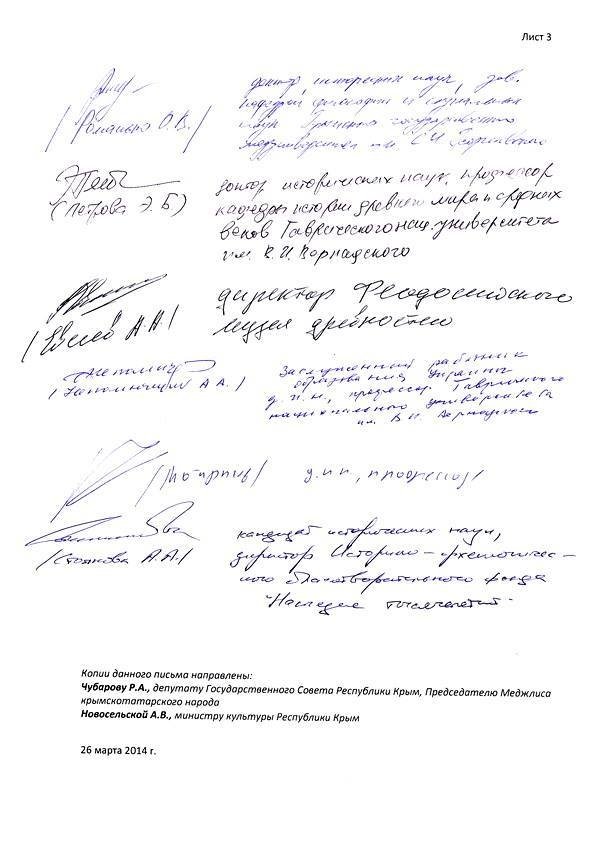 Лист 3
доктор исторических наук, зав.
/ Романько О.В. / кафедрой философии и социальных
наук Крымского государственного
медуниверситета им. С.И. Георгиевского
доктор исторических наук, профессор
(Петрова Э.Б) кафедры истории древнего мира и средних
веков Таврического нац. университета
им. В.И. Вернадского
директор Феодосийского
/ Евсеев А.А / музея древностей
Заслуженный работник
образования Украины
/ Непомнящий А А. / д.и.н., профессор Таврического
национального университета
им. В И. Вернадского
/ / д.и.н, профессор
кандидат исторических наук,
/ Стоянова А.А / директор Историко – археологичес –
кого благотворительного фонда
"Наследие тысячелетий"
Копии данного письма направлены:
Чубарову Р.А., депутату Государственного Совета Республики Крым, Председателю Меджлиса
крымскотатарского народа
Новосельской А.В., министру культуры Республики Крым
26 марта 2014 г.